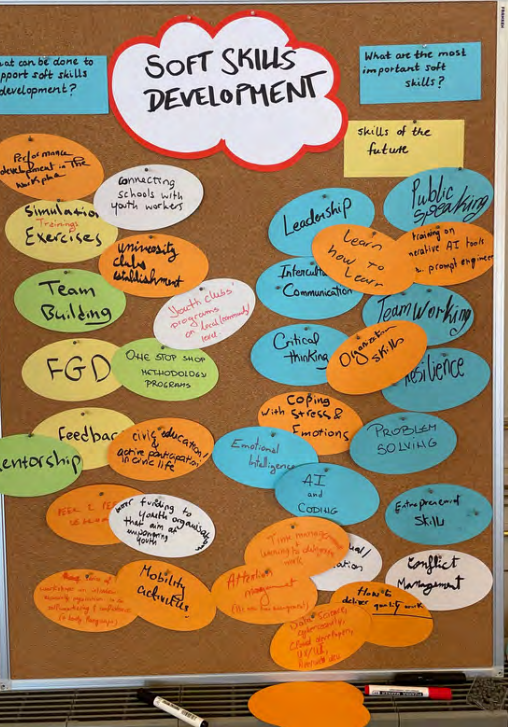 SOFT SKILLS
DEVELOPMENT
at can be done to
pport soft skills
development?
What are the most
important soft
skills?
skills of the
future
Performance
development in The
connecting
schools with
youth workers
Simulation
Trainings
Exercises
university
clubs
establishment
Team
Building
Youth clubs'
programs
on local community
level
FGD
ONE STOP SHOP
METHODOLOGY
PROGRAMS
Feedbac
entorship
civic education/
active participation
in civic life
PEER 2 PEE
funding to
youth organisations
that aim at
youth
Mobility
activities
Leadership
Public
speaking
Learn
how to
Learn
training on
nerative AI tools
& prompt engineer
Intercultu
Communication
Team working
Critical
thinking
Organization
skills
Resilience
Coping
with stress &
Emotions
PROBLEM
SOLVING
Emotional
Intelligence
AI
and
CODING
Entrepreneurial
Skill
Time manage
learning to delegate
work
Conflict
Management
Attention
How to
deliver quality work
Data Science
cybersecurity
cloud developers
UX/UI,